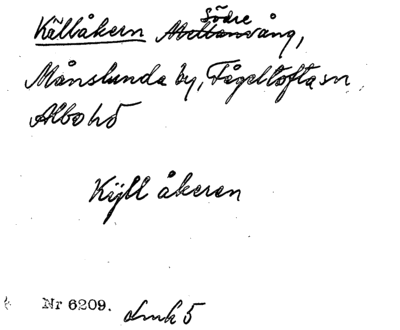 Källåkern Södre Mellanvång,
Månslunda by, Fågeltofta sn
Albo hd
Kÿll åkeren
Nr 6209. Lmk 5